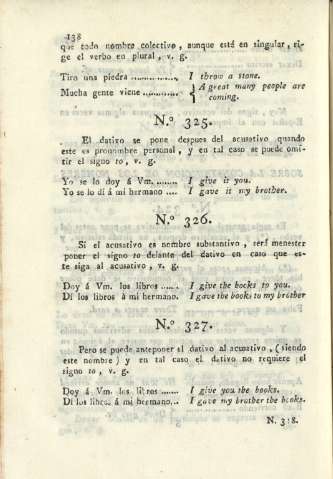 138
que todo nombre colectivo, aunque está en singular, ri-
ge el verbo en plural, v. g.
Tiro una piedra .............. I throw a stone.
Mucha gente viene ........... } A great many people are
coming.
N.º 325.
El dativo se pone despues del acusativo quando
este es pronombre personal, y en tal caso se puede omi-
tir el signo to, v. g.
Yo se lo doy á Vm. ........ I give it you.
Yo se lo dí á mi hermano .... I gave it my brother.
N.º 326.
Si el acusativo es nombre substantivo, será menester
poner el signo to delante del dativo en caso que es-
te siga al acusativo, v. g.
Doy á Vm. los libros ...... I give the books to you.
Dí los libros á mi hermano. I gave the books to my brother
N.º 327.
Pero se puede anteponer el dativo al acusativo, (siendo
este nombre) y en tal caso el dativo no requiere el
signo to, v. g.
Doy á Vm. los libros ....... I give you the books.
Dí los libros á mi hermano... I gave my brother the books.
N. 318.